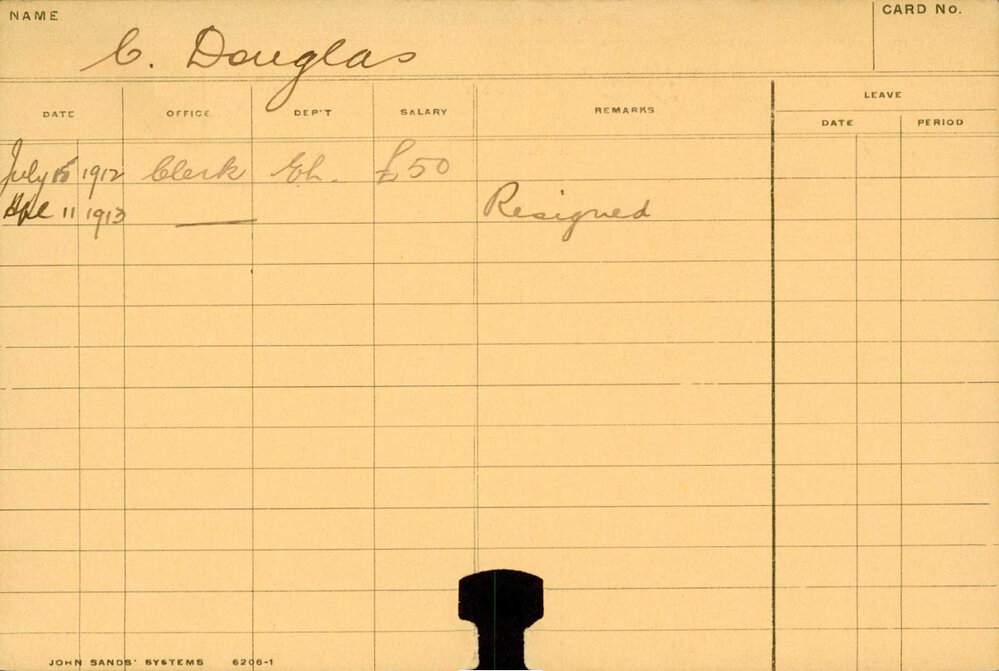 NAME
C. Douglas
CARD No.
DATE OFFICE DEP'T SALARY REMARKS LEAVE
DATE PERIOD
July 15 1912 Clerk Ch. £50
11 1913 — Resigned
JOHN SANDS' SYSTEMS 6206-1